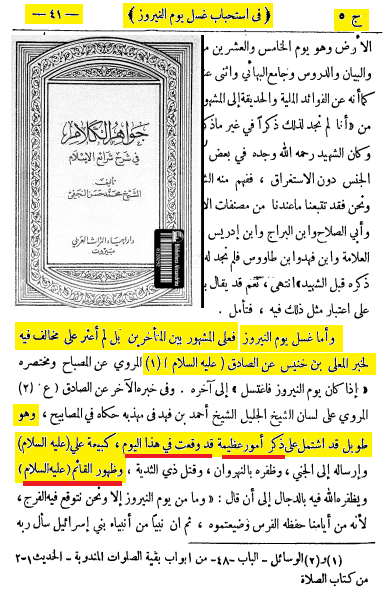 ج ٥
﴿ فى استحباب غسل يوم النيروز ﴾
— ٤١ —
الأرض وهو يوم الخامس والعشرين من
والبيان والدروس وجامع البهائي واثنى
كما أنه عن الفوائد الملية والحديقة إلى المشهور
من « أنا لم نجد لذلك ذكراً في غير ماذك
وكان الشهيد رحمه الله وجده في بعض
الجنس دون الاستغراق ، ففهم منه الش
ونحن فقد تتبعنا ماعندنا من مصنفات
وأبي الصلاح وابن البراج وابن إدريس
العلامة وابن فهد وابن طاووس فلم نجد له
ذكره قبل الشهيد » انتهى ، نعم قد يقال
على اعتبار مثل ذلك فيه ، فتأمل .
جواهر الكلام
في شرح شرائع الإسلام
تأليف
الشيخ محمد حسن النجفي
دار إحياء التراث العربي
بيروت
Bibliotheca Alexandrina
وأما غسل يوم النيروز فعلى المشهور بين المتأخرين بل لم أعثر على مخالف فيه
لخبر المعلى بن خنيس عن الصادق ( عليه السلام ) (١) المروي عن المصباح ومختصره
« إذا كان يوم النيروز فاغتسل » إلى آخره . وفي خبره الآخر عن الصادق ( ع ) (٢)
المروي على لسان الشيخ الجليل الشيخ أحمد بن فهد فى مهذبه حكاه في المصابيح ، وهو
طويل قد اشتمل على ذكر أمور عظيمة قد وقعت في هذا اليوم ، كبيعة علي (عليه السلام)
وإرساله إلى الجني ، وظفره بالنهروان ، وقتل ذي الثدية ، وظهور القائم ( عليه السلام )
ويظفره الله فيه بالدجال إلى أن قال : « وما من يوم النيروز إلا ونحن نتوقع فيه الفرج ،
لأنه من أيامنا حفظه الفرس وضيعتموه ، ثم ان نبيّاً من أنبياء بني إسرائيل سأل ربه
(١) و(٢) الوسائل - الباب -٤٨- من ابواب بقية الصلوات المندوبة - الحديث ١-٢
من كتاب الصلاة